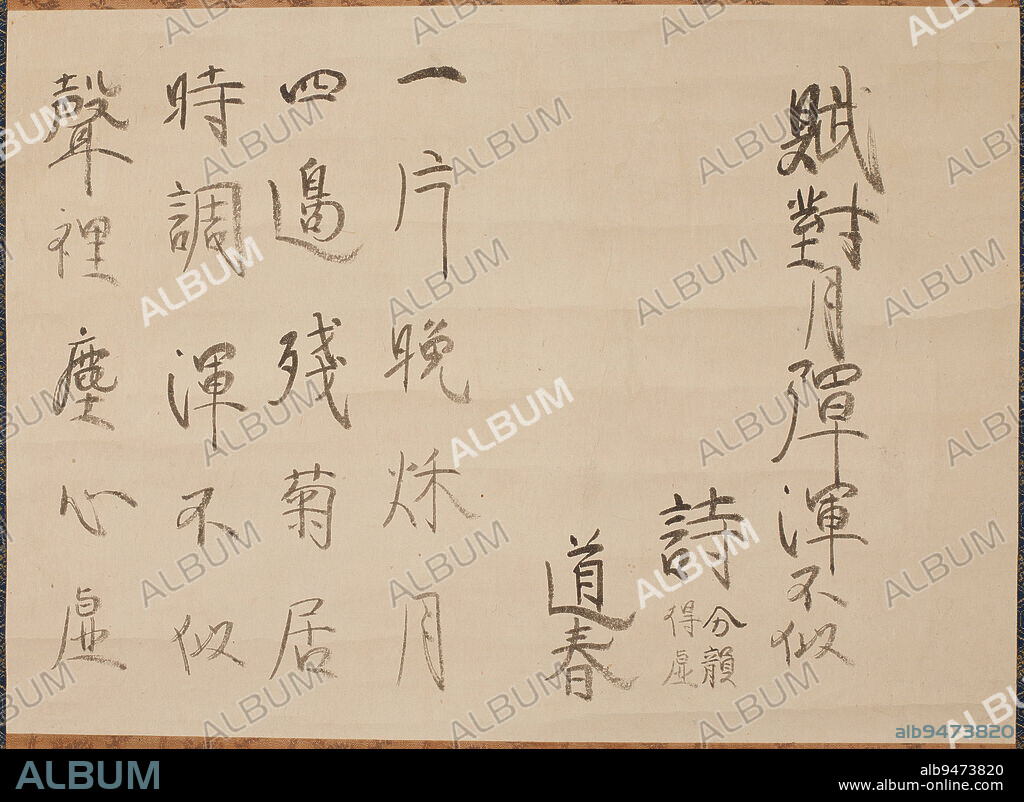 賦對月彈渾不似
詩 分韻得虛
道春
一片晚秌月
四邊殘菊居
時調渾不似
聲裡塵心虛
ALBUM
alb9473820
ALBUM
alb9473820
www.album-online.com